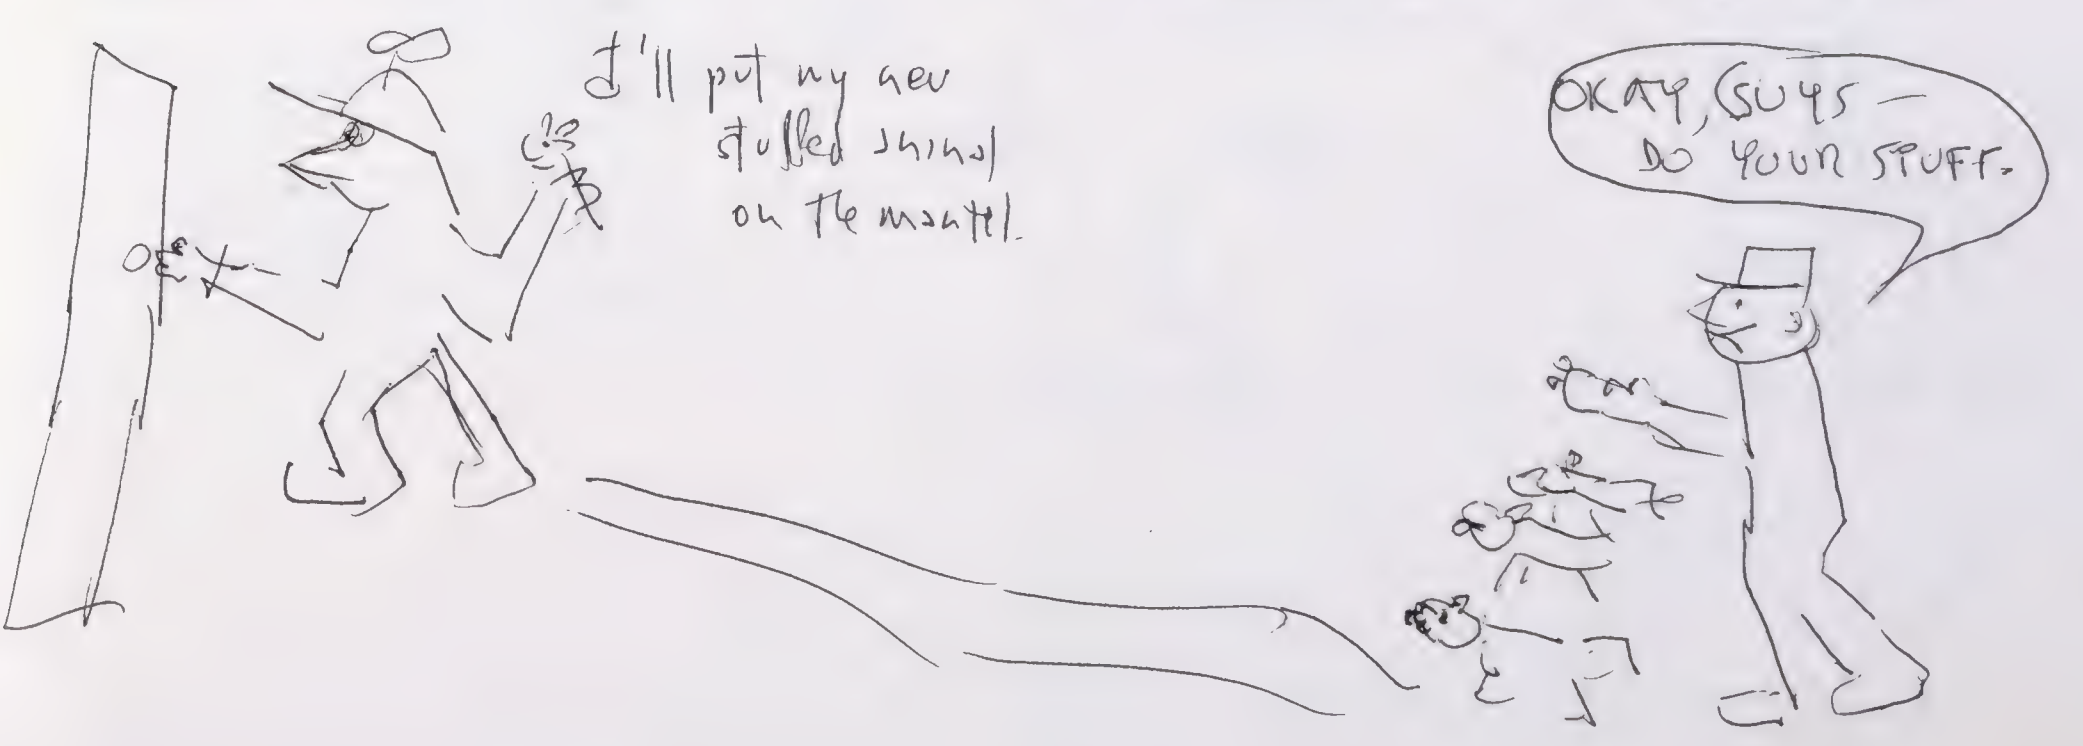 I'll put my new
stuffed animal
on the mantel.
OKAY, GUYS —
DO YOUR STUFF.